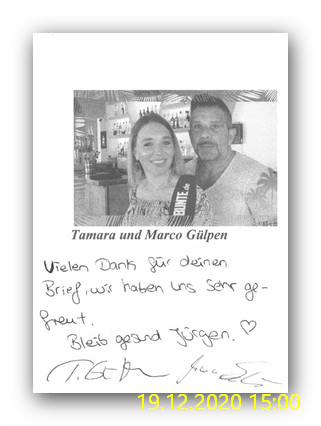 BUNTE.de
Tamara und Marco Gülpen
Vielen Dank für deinen
Brief, wir haben uns sehr ge-
freut.
Bleib gesund Jürgen. ♡
19.12.2020 15:00